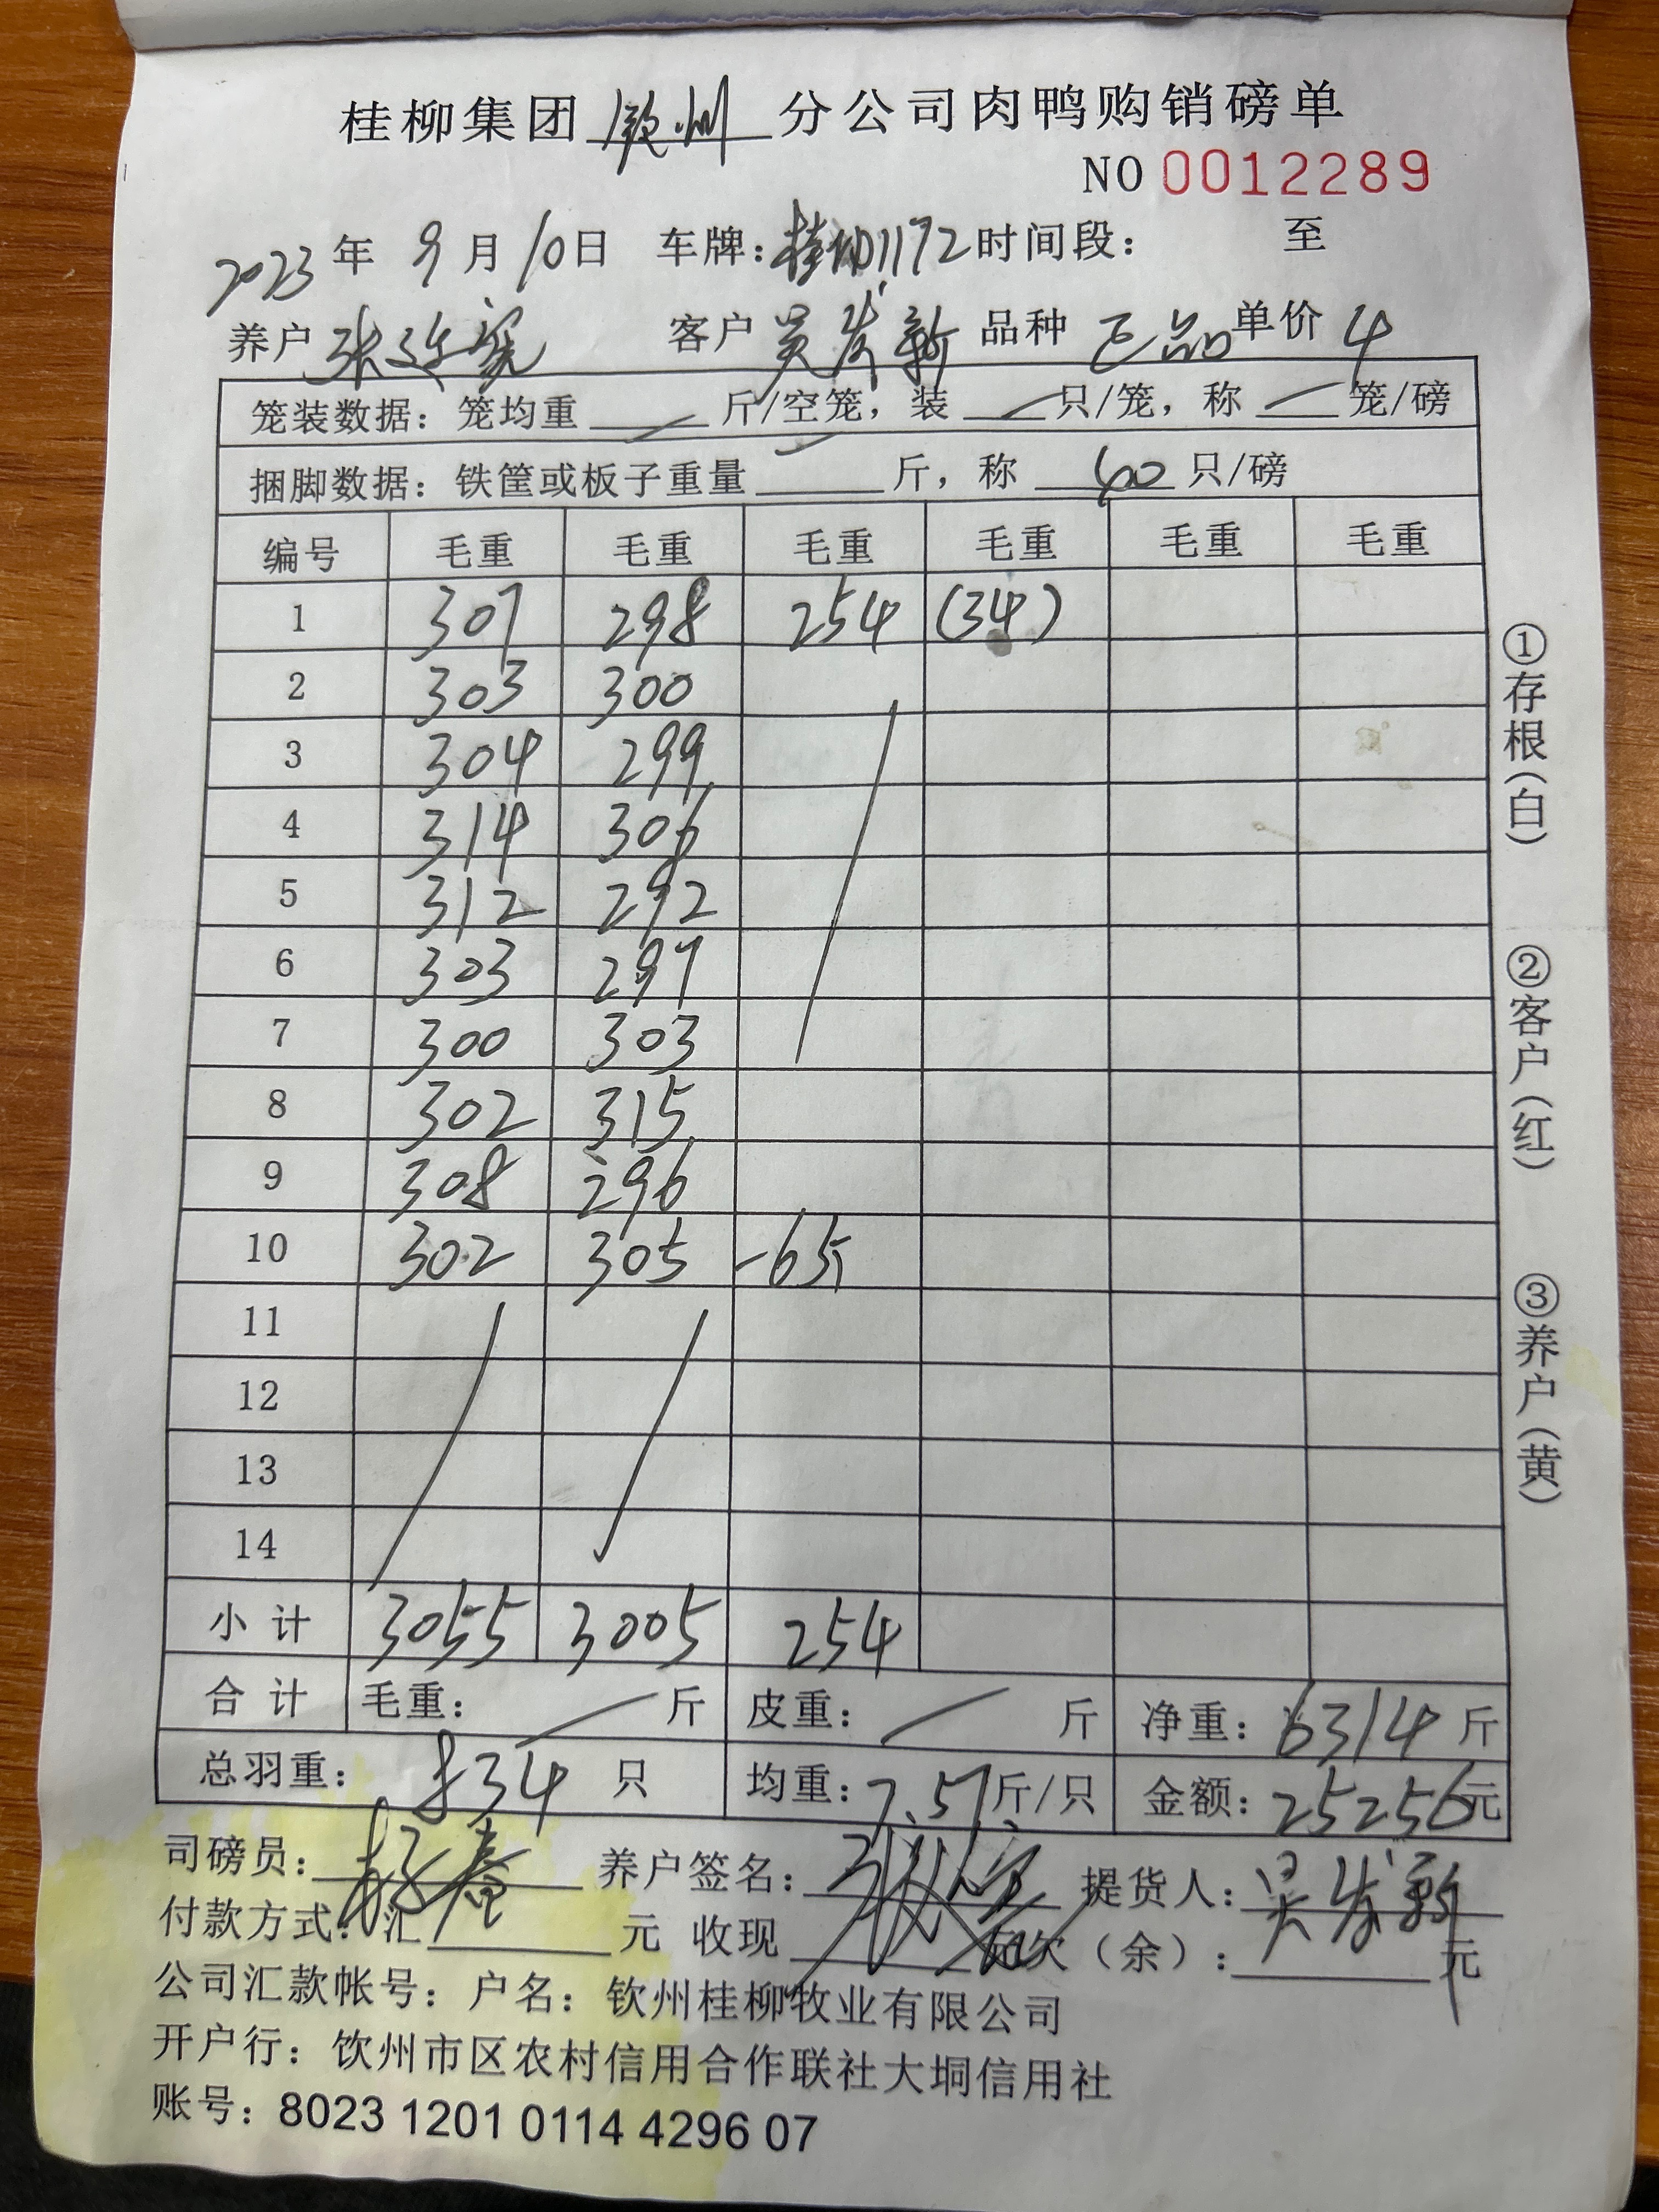 桂柳集团 钦州 分公司肉鸭购销磅单
NO 0012289
2023 年 9 月 10 日 车牌: 1172 时间段: 至
养户 张 客户 吴发新 品种 正品 单价 4
笼装数据: 笼均重 斤/空笼, 装 只/笼, 称 笼/磅
捆脚数据: 铁筐或板子重量 斤, 称 40 只/磅
编号 毛重 毛重 毛重 毛重 毛重 毛重
1 307 298 254 (34)
2 303 300
3 304 299
4 314 306
5 312 292
6 303 297
7 300 303
8 302 315
9 308 296
10 302 305
11
12
13
14
小计 3055 3005 254
合计 毛重: 斤 皮重: 斤 净重: 6314 斤
总羽重: 834 只 均重: 7.57 斤/只 金额: 25256 元
司磅员: 养户签名: 提货人: 吴发新
付款方式: 汇 元 收现 元欠(余): 元
公司汇款帐号: 户名: 钦州桂柳牧业有限公司
开户行: 钦州市区农村信用合作联社大垌信用社
账号: 8023 1201 0114 4296 07
①存根(白)
②客户(红)
③养户(黄)